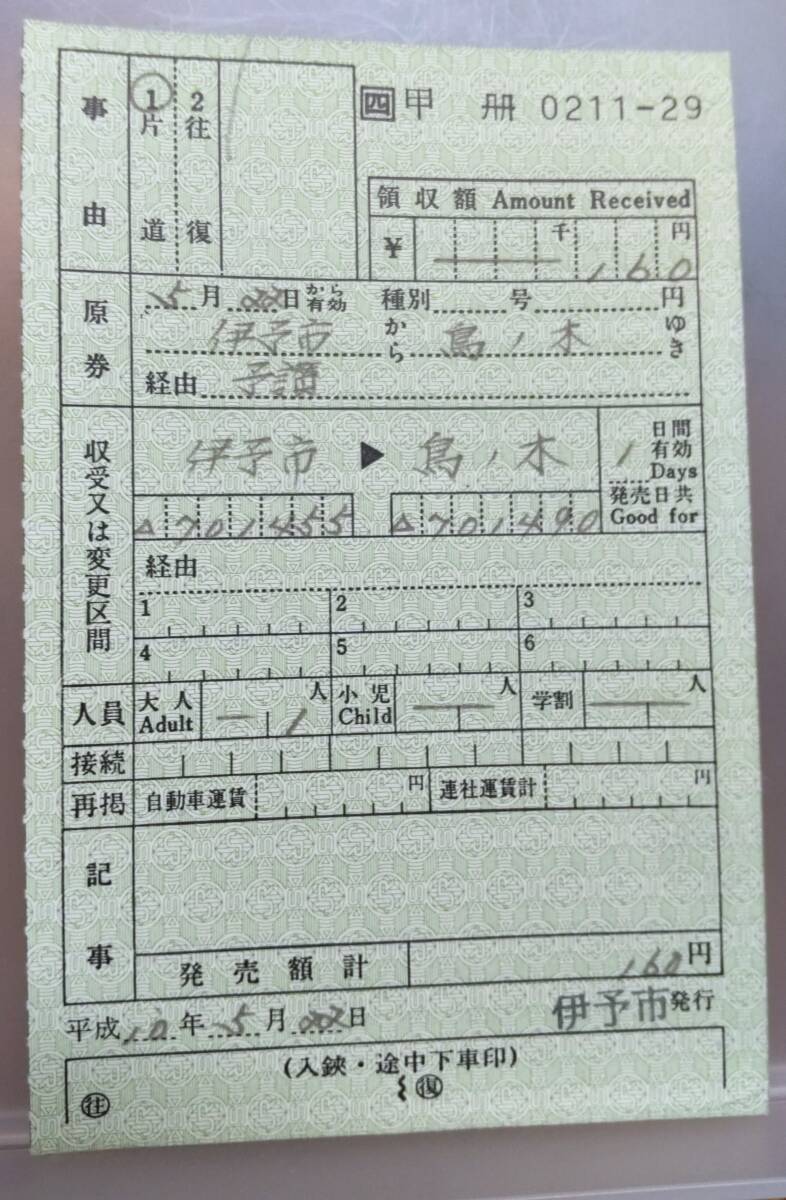 事由
1片道
2往復
四 甲 冊 0211-29
領収額 Amount Received
¥ 千 160 円
原券
5月22日から有効 種別 号 円
伊予市から鳥ノ木ゆき
経由 予讃
収受又は変更区間
伊予市 ▶ 鳥ノ木
1日間有効 Days
発売日共 Good for
△701455 △701490
経由
1 2 3
4 5 6
人員 大人 Adult 1人 小児 Child 人 学割 人
接続
再掲 自動車運賃 円 連社運賃計 円
記事
発売額計 160円
平成10年5月22日 伊予市発行
(入鋏・途中下車印)
往 復